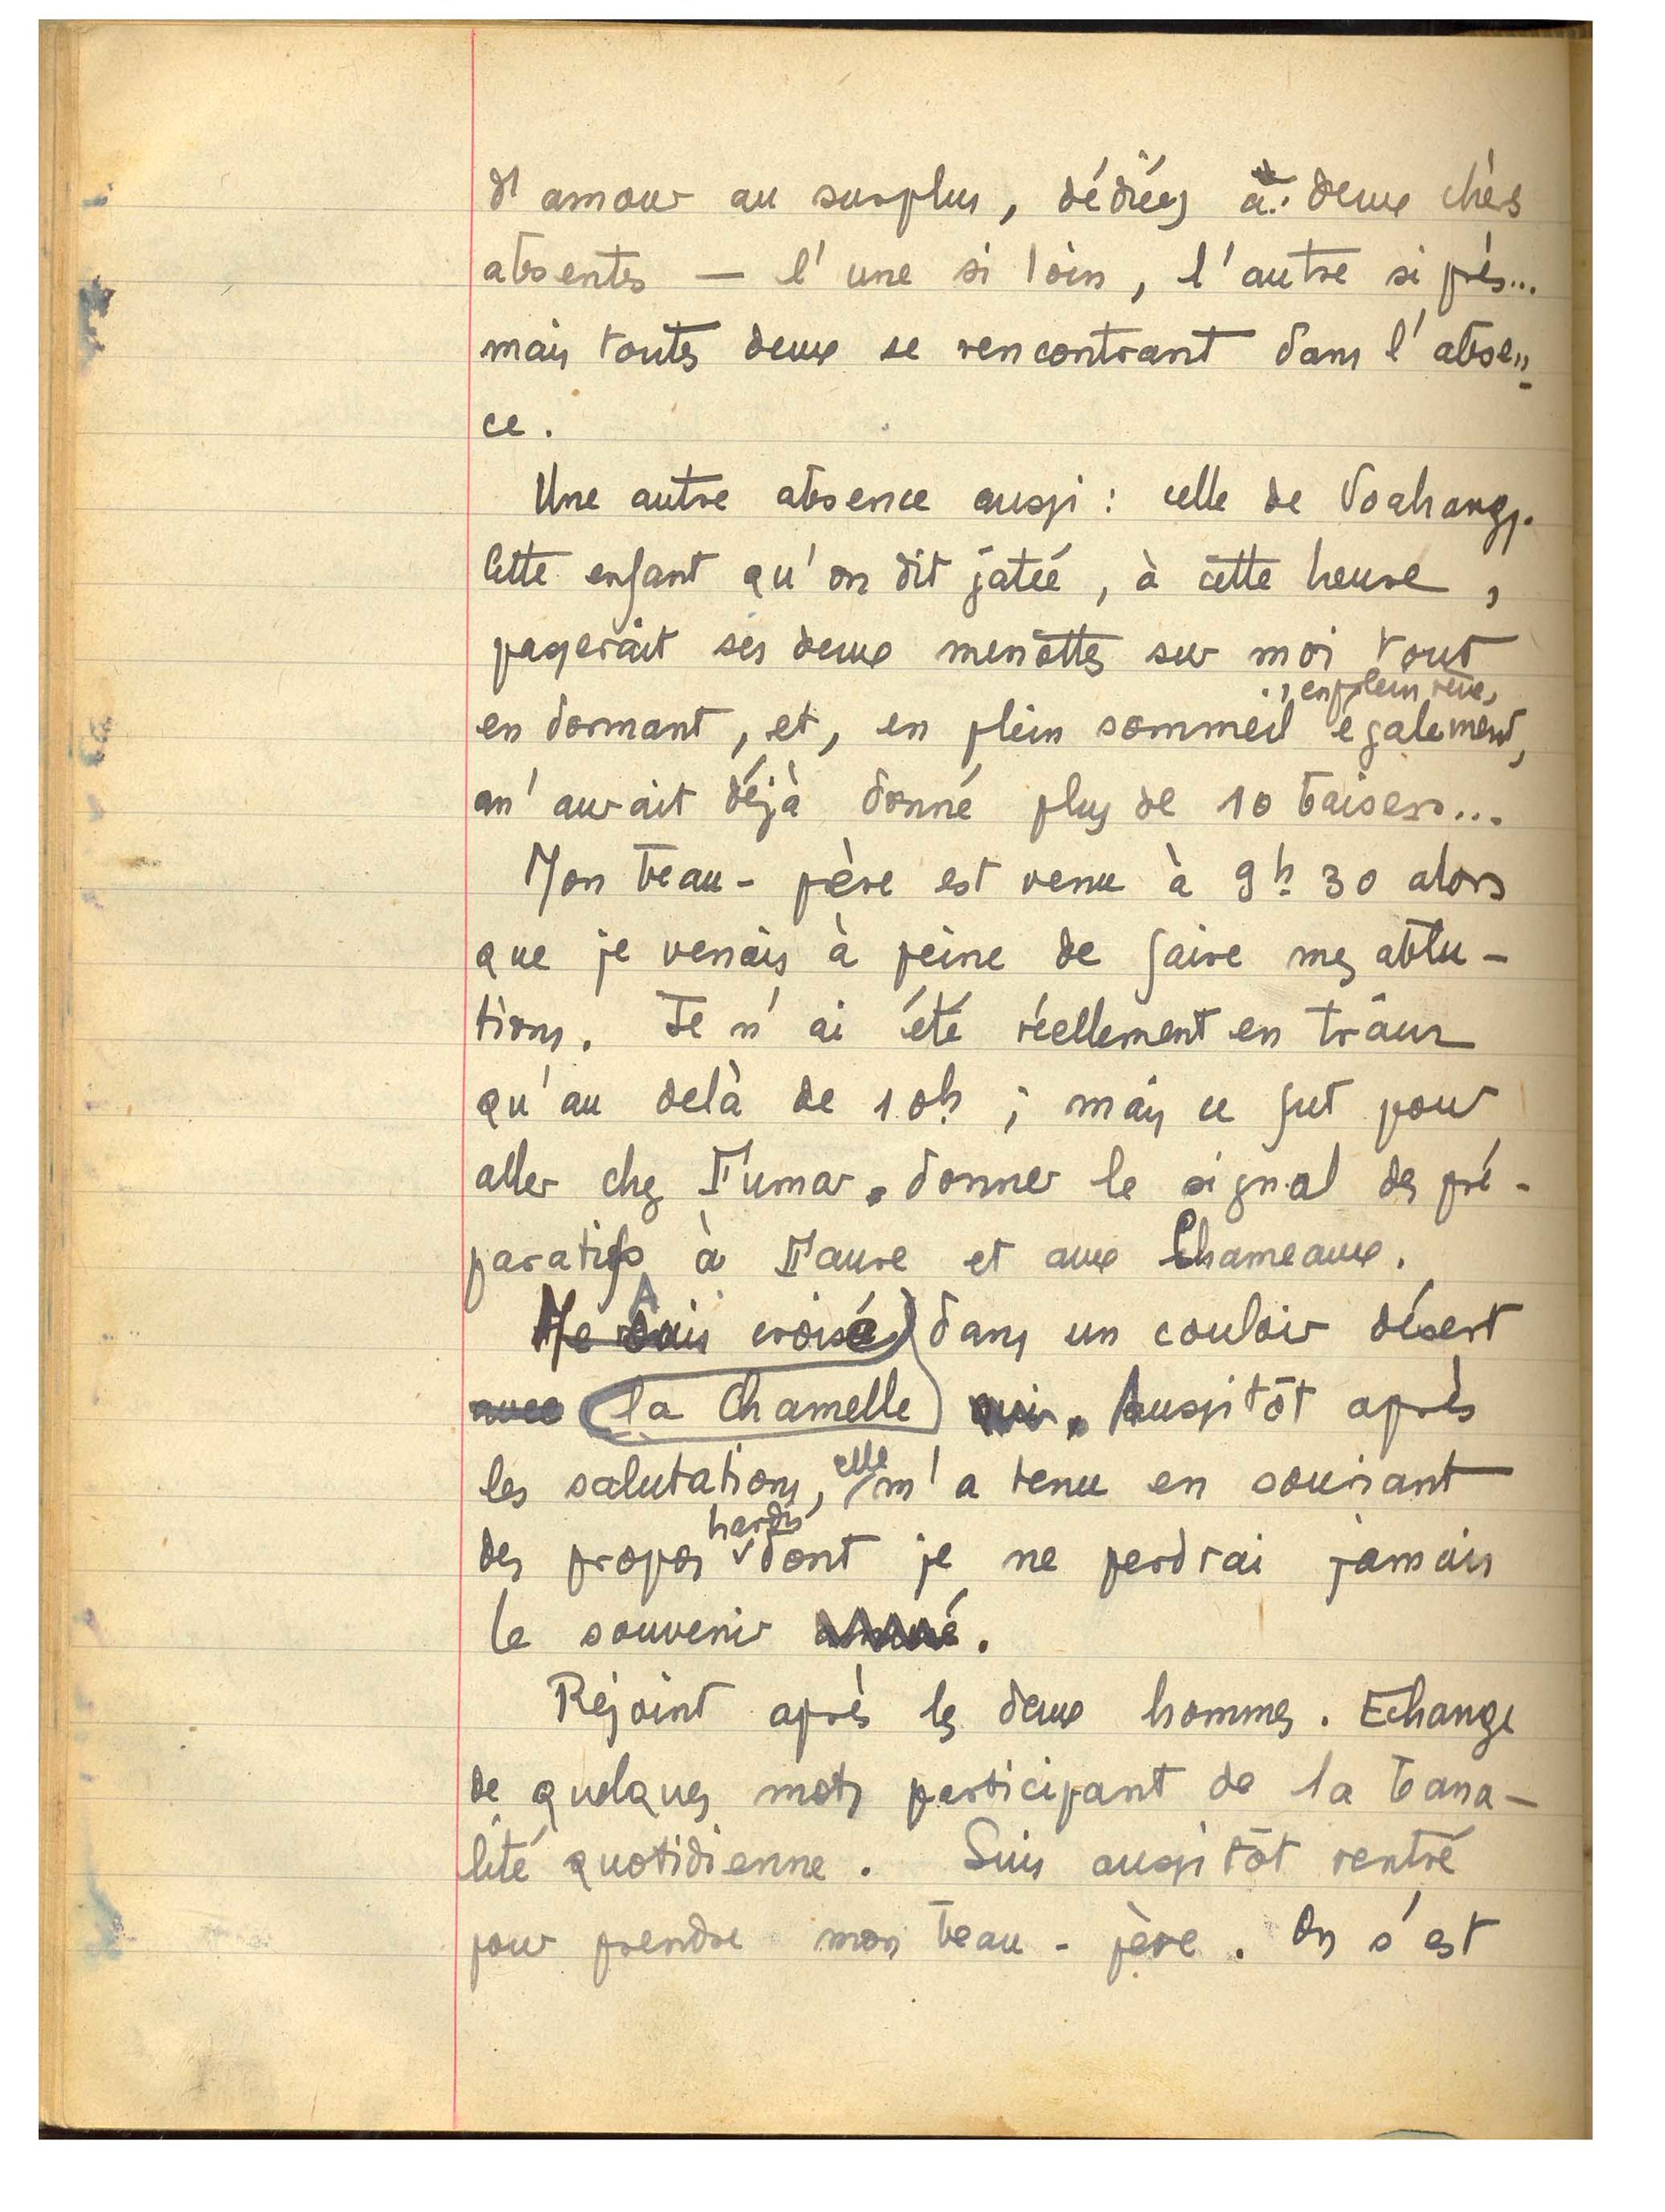 d'amour au surplus, dédiées à deux chères
absentes — l'une si loin, l'autre si près...
mais toutes deux se rencontrant dans l'absen-
ce.
Une autre absence aussi : celle de Voahangy.
Cette enfant qu'on dit gâtée, à cette heure,
pagerait ses deux menottes sur moi tout
, en plein rêve,
en dormant, et, en plein sommeil également,
m'aurait déjà donné plus de 10 baisers...
Mon beau-père est venu à 9h 30 alors
que je venais à peine de faire mes ablu-
tions. Je n'ai été réellement en train
qu'au delà de 10h ; mais ce fut pour
aller chez Fumar. donner le signal des pré-
paratifs à Faure et aux Chameaux.
Me suis croisé dans un couloir désert
avec la Chamelle qui. Aussitôt après
les salutations, elle m'a tenu en souriant
hardis
des propos dont je ne perdrai jamais
le souvenir.
Rejoint après les deux hommes. Echange
de quelques mots participant de la bana-
lité quotidienne. Suis aussitôt rentré
pour prendre mon beau-père. On s'est